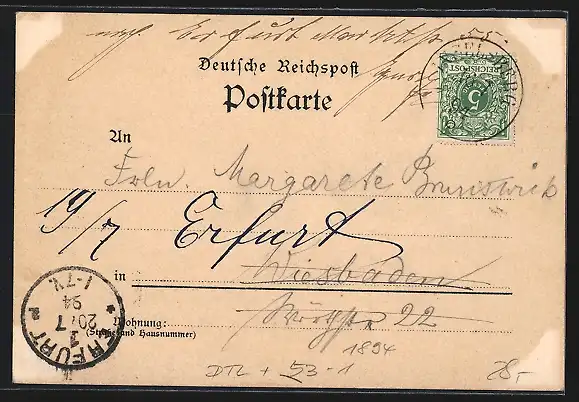 nach Erfurt
Deutsche Reichspost
Postkarte
REICHSPOST
5
An
Frln. Margarete Brunswick
19/7 Erfurt
in Wiesbaden
Wohnung:
(Straße und Hausnummer)
22
ERFURT
20/7
94
1-7V.
1894
DTL + 53-1
28,-